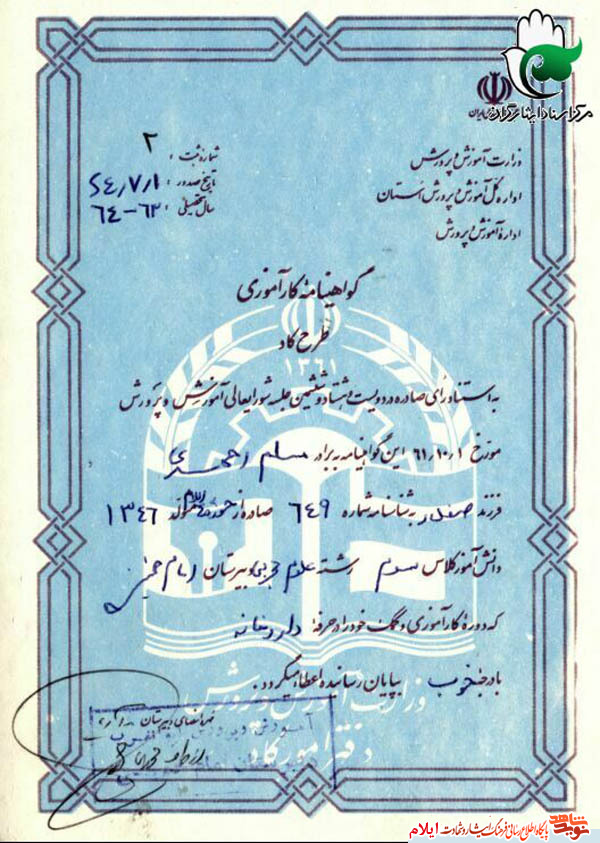 مرکز اسناد ایثارگران
وزارت آموزش و پرورش
اداره کل آموزش و پرورش استان
اداره آموزش و پرورش
شماره ثبت : ۲
تاریخ صدور : ۶۴٫۷٫۱
سال تحصیلی : ۶۳-۶۴
گواهینامه کارآموزی
طرح کاد
۱۳۶۱
به استناد رأی صادره در دویست و هشتاد و ششمین جلسه شورایعالی آموزش و پرورش
مورخ ۶۱٫۱۰٫۱ این گواهینامه به برادر مسلم احمدی
فرزند صفدر به شناسنامه شماره ۶۴۹ صادره از حوزه متولد ۱۳۴۶
دانش آموز کلاس سوم رشته علوم تجربی دبیرستان امام خمینی
که دوره کارآموزی و کمک خود را در حرفه داروخانه
با درجه خوب بپایان رسانیده اعطاء میگردد.
وزارت آموزش و پرورش
دفتر امور کاد
مهر و امضای دبیرستان
نوید شاهد
پایگاه اطلاع رسانی فرهنگ ایثار و شهادت ایلام